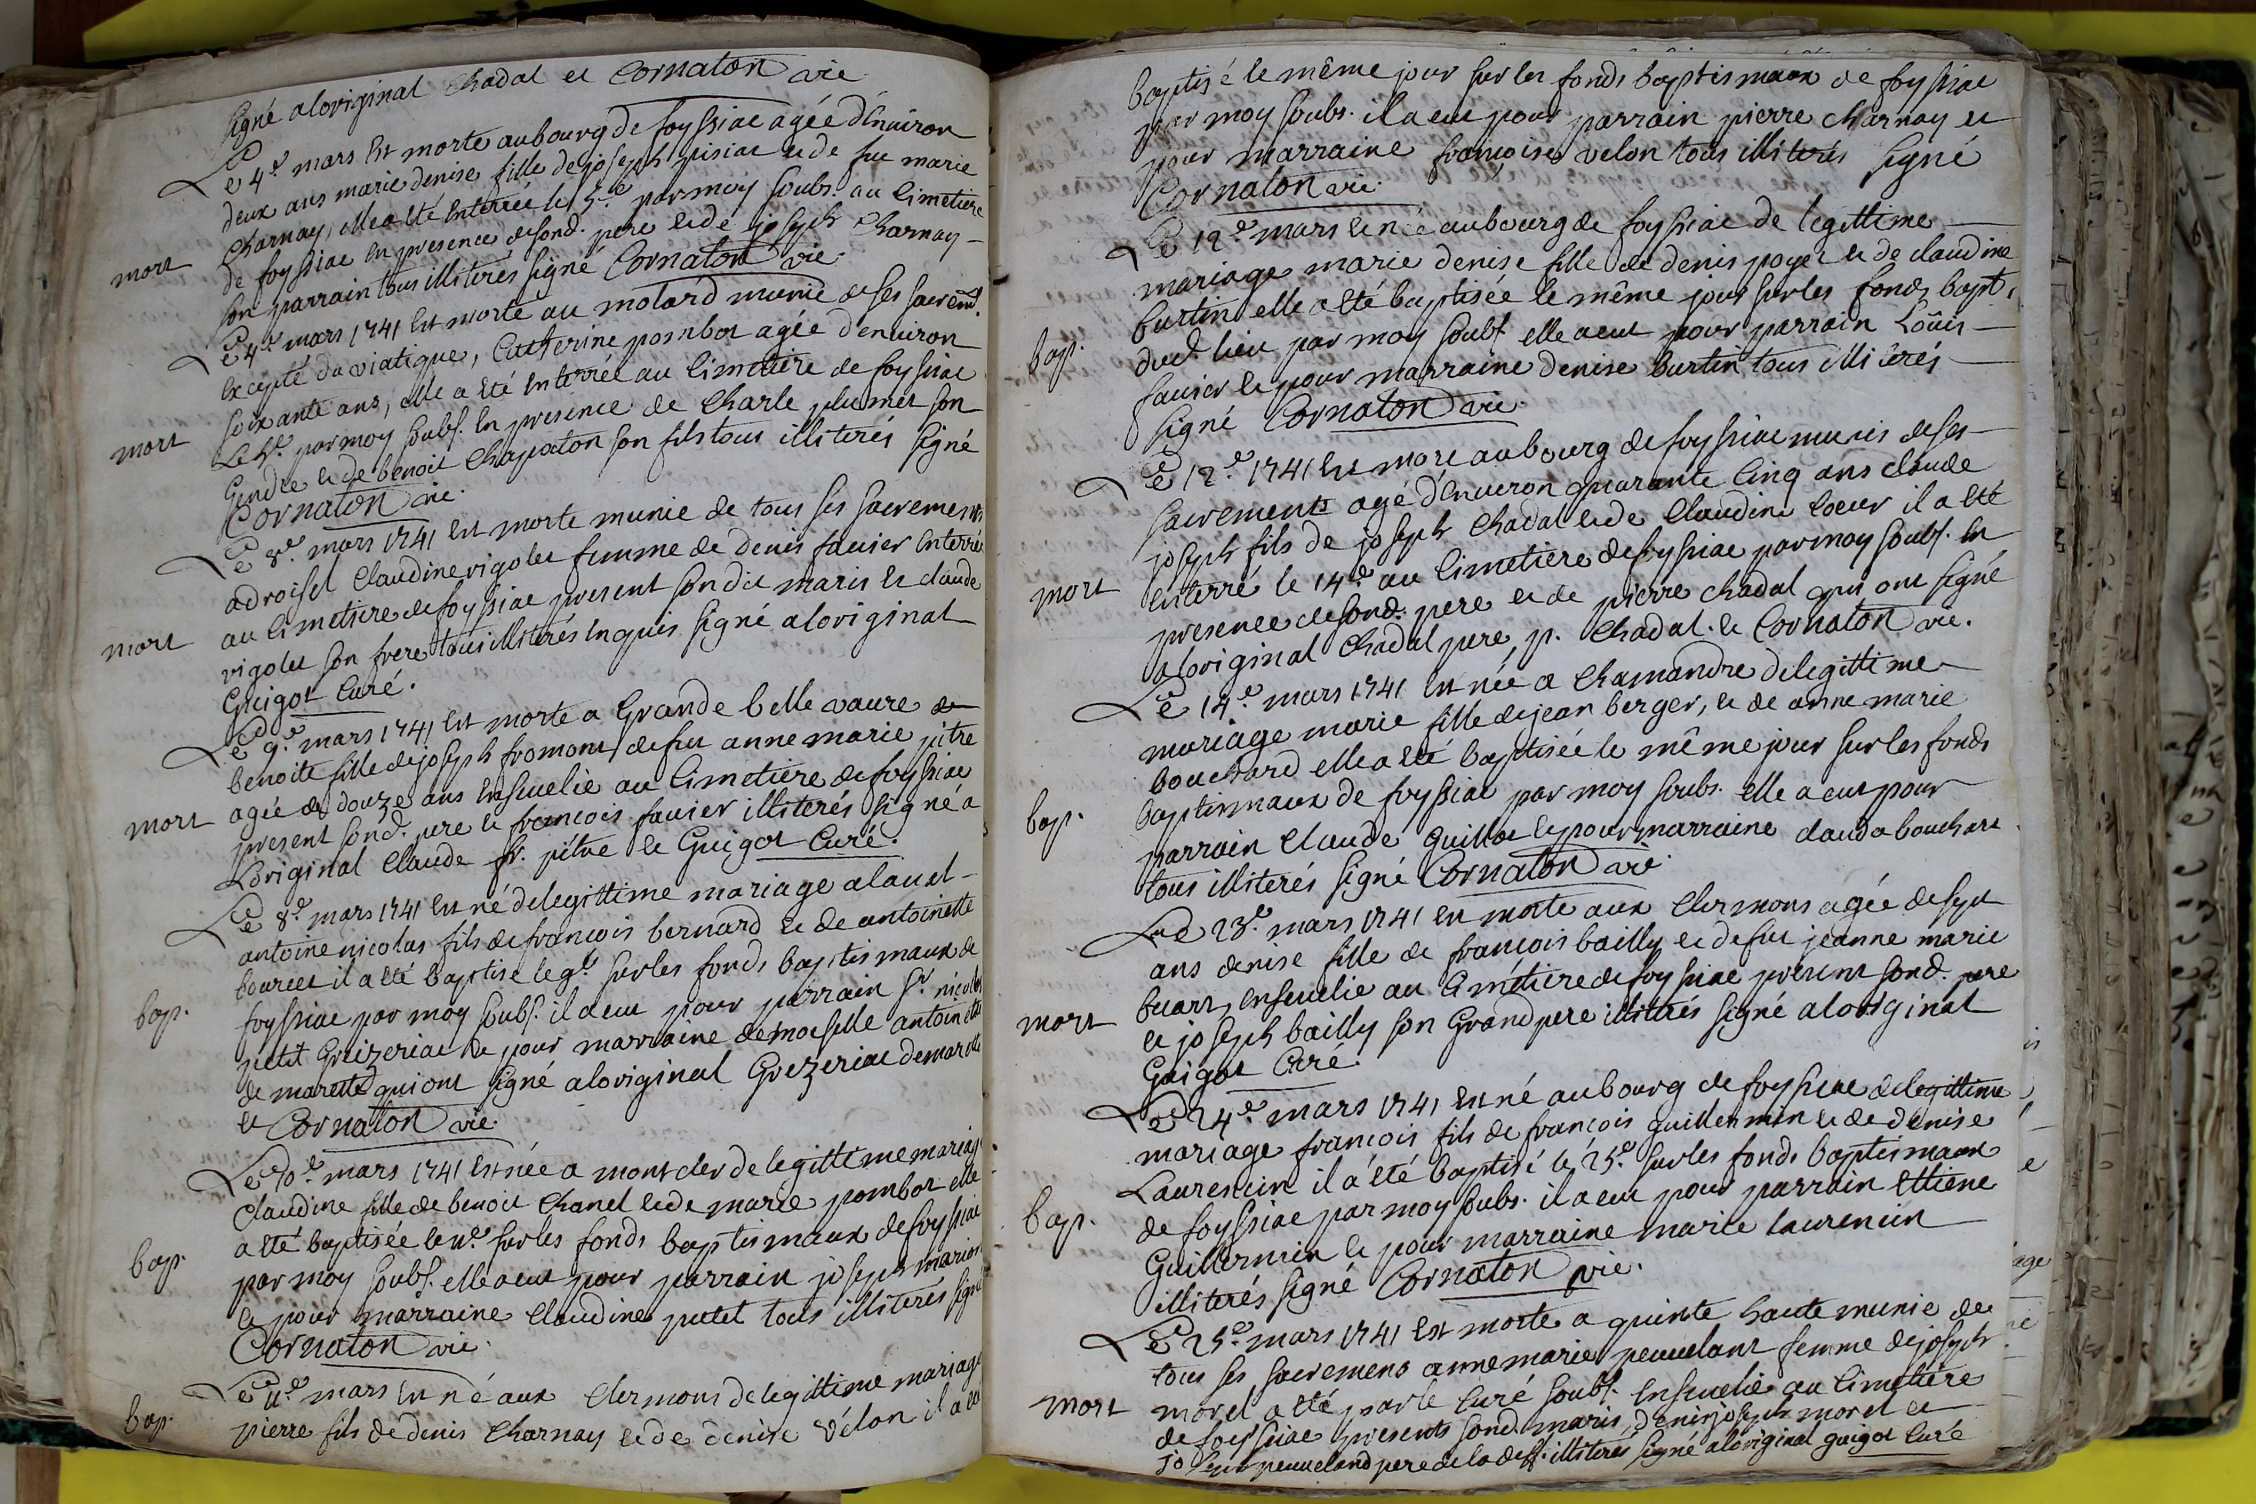 signé aloriginal Chadal et Cornaton vic
Le 4.e mars est morte au bourg de foyssiac agée d'environ
deux ans marie denise fille de joseph pisiac et de fue marie
Charnay, elle a été enterrée le 5.e par moy soubs. au Cimetiere
de foyssiac en presence de sond. pere et de joseph Charnay
mort
son parrain tous illiterés signé Cornaton vic.
Le 4.e mars 1741 est morte au motard munie de ses sacrem.
excepté du viatique, Catherine pombot agée d'environ
soixante ans, elle a été enterrée au Cimetiere de foyssiac
mort
Le 5.e par moy soubs. en presence de Charle plumet son
Gendre et de benoit Chapaton son fils tous illiterés signé
Cornaton vic.
Le 8.e mars 1741 est morte munie de tous ses sacremens
a droisel Claudine vigolet femme de denis favier enterrée
au Cimetiere de foyssiac present son dit maris et claude
mort
vigolet son frere tous illiterés enquis signé aloriginal
Guigot Curé.
Le 9.e mars 1741 est morte a Grande belle vavre
benoite fille de joseph fromont de fue anne marie pitre
agée de douze ans ensevelie au Cimetiere de foyssiac
mort
present sond. pere et francois favier illiterés signé a
Loriginal Claude fr. pitre et Guigot Curé.
Le 8.e mars 1741 est né de legittime mariage a laval
antoine nicolas fils de francois bernard et de antoinette
bourcet il a été baptisé le 9.e sur les fonds baptismaux de
bap.
foyssiac par moy soubs. il a eut pour parrain sr. nicolas
petit Greizeriac et pour marraine demoiselle antoinette
de marette qui ont signé aloriginal Grezeriac demarette
et Cornaton vic.
Le 10.e mars 1741 est née a montcler de legittime mariage
Claudine fille de benoit Chanel et de marie pombot elle
a été baptisée le 11.e sur les fonds baptismaux de foyssiac
bap.
par moy soubs. elle a eut pour parrain joseph marion
et pour marraine Claudine putet tous illiterés signé
Cornaton vic.
Le 11.e mars est né aux Clermons de legittime mariage
bap.
pierre fils de denis Charnay et de denise vélon il a été
baptisé le même jour sur les fonds baptismaux de foyssiac
par moy soubs. il a eut pour parrain pierre Charnay et
pour marraine françoise velon tous illiterés signé
Cornaton vic.
Le 12.e mars est née au bourg de foyssiac de legittime
mariage marie denise fille de denis poyet et de claudine
burtin elle a été baptisée le même jour sur les fonds bapt.
bap.
dud. lieu par moy soubs elle a eut pour parrain Loüis
favier et pour marraine denise burtin tous illiterés
signé Cornaton vic.
Le 12.e 1741 est mort au bourg de foyssiac munis de ses
sacrements agé d'environ quarante Cinq ans claude
joseph fils de joseph Chadal et de Claudine coeur il a été
mort
enterré le 14.e au Cimetiere de foyssiac par moy soubs. en
presence de sond. pere et de pierre chadal qui ont signé
aloriginal Chadal pere, p. Chadal. et Cornaton vic.
Le 14.e mars 1741 est née a Chamandre de legittime
mariage marie fille de jean berger, et de anne marie
bouchard elle a été baptisée le même jour sur les fonds
bap.
baptismaux de foyssiac par moy soubs. elle a eut pour
parrain Claude Guillot et pour marraine clauda bouchard
tous illiterés signé Cornaton vic.
Le 23.e mars 1741 est morte aux Clermons agée de sept
ans denise fille de francois bailly et de fue jeanne marie
buart, ensevelie au Cimetiere de foyssiac present sond. pere
mort
et joseph bailly son Grand pere illiterés signé aloriginal
Guigot Curé.
Le 24.e mars 1741 est né au bourg de foyssiac de legittime
mariage françois fils de françois guillermin et de denise
Laurencin il a été baptisé le 25.e sur les fonds baptismaux
bap.
de foyssiac par moy soubs. il a eut pour parrain ettiene
Guillermin et pour marraine marie laurencin
illiterés signé Cornaton vic.
Le 25.e mars 1741 est morte a quinte haute munie de
tous ses sacremens anne marie peuvelant femme de joseph
mort
morel a été par le Curé soubs. ensevelie au Cimetiere
de foyssiac presents sond. maris, denis joseph morel et
joseph peuveland pere de la deff. illiterés signé aloriginal guigot Curé